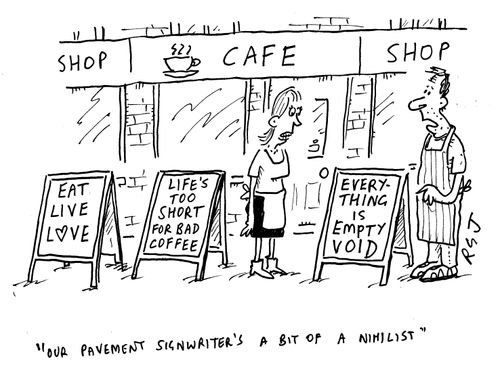 SHOP CAFE SHOP
EAT
LIVE
L♡VE
LIFE'S
TOO
SHORT
FOR BAD
COFFEE
EVERY-
THING
IS
EMPTY
VOID
PGJ
"OUR PAVEMENT SIGNWRITER'S A BIT OF A NIHILIST"